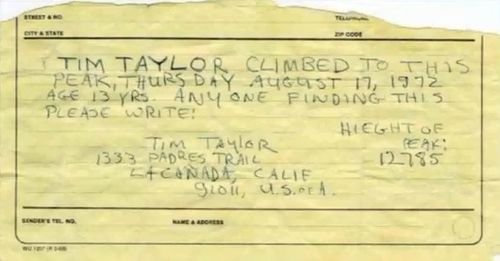 STREET & NO. TELEPHONE
CITY & STATE ZIP CODE
TIM TAYLOR CLIMBED TO THIS
PEAK, THURSDAY AUGUST 17, 1972
AGE 13 YRS. ANYONE FINDING THIS
PLEASE WRITE!
HIEGHT OF
TIM TAYLOR PEAK:
1333 PADRES TRAIL 12785
LACANADA, CALIF
91011, U.S. of A.
SENDER'S TEL. NO. NAME & ADDRESS
WU 1207 (R 5-69)